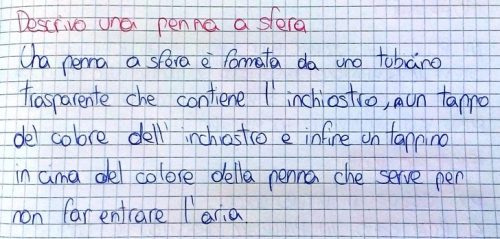 Descrivo una penna a sfera
Una penna a sfera è formata da uno tubicino
trasparente che contiene l'inchiostro, un tappo
del colore dell'inchiostro e infine un tappino
in cima del colore della penna che serve per
non far entrare l'aria